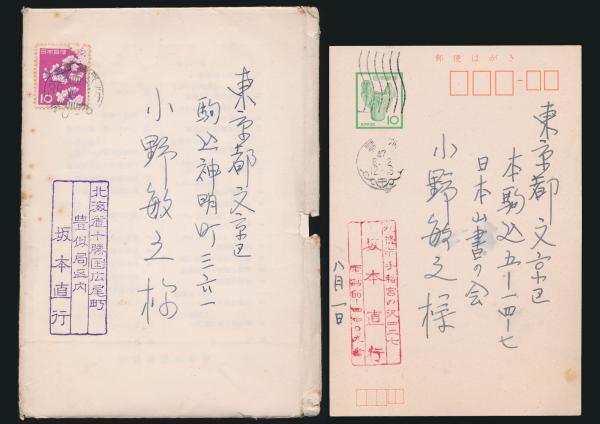 日本郵便
10
東京都文京区
駒込神明町三六一
小野敏之様
北海道十勝国広尾町
豊似局区内
坂本直行
郵便はがき
10
47
東京都文京区
本駒込五ー一四ー七
日本山書の会
小野敏之様
手稲宮の沢四二七
坂本直行
八月一日